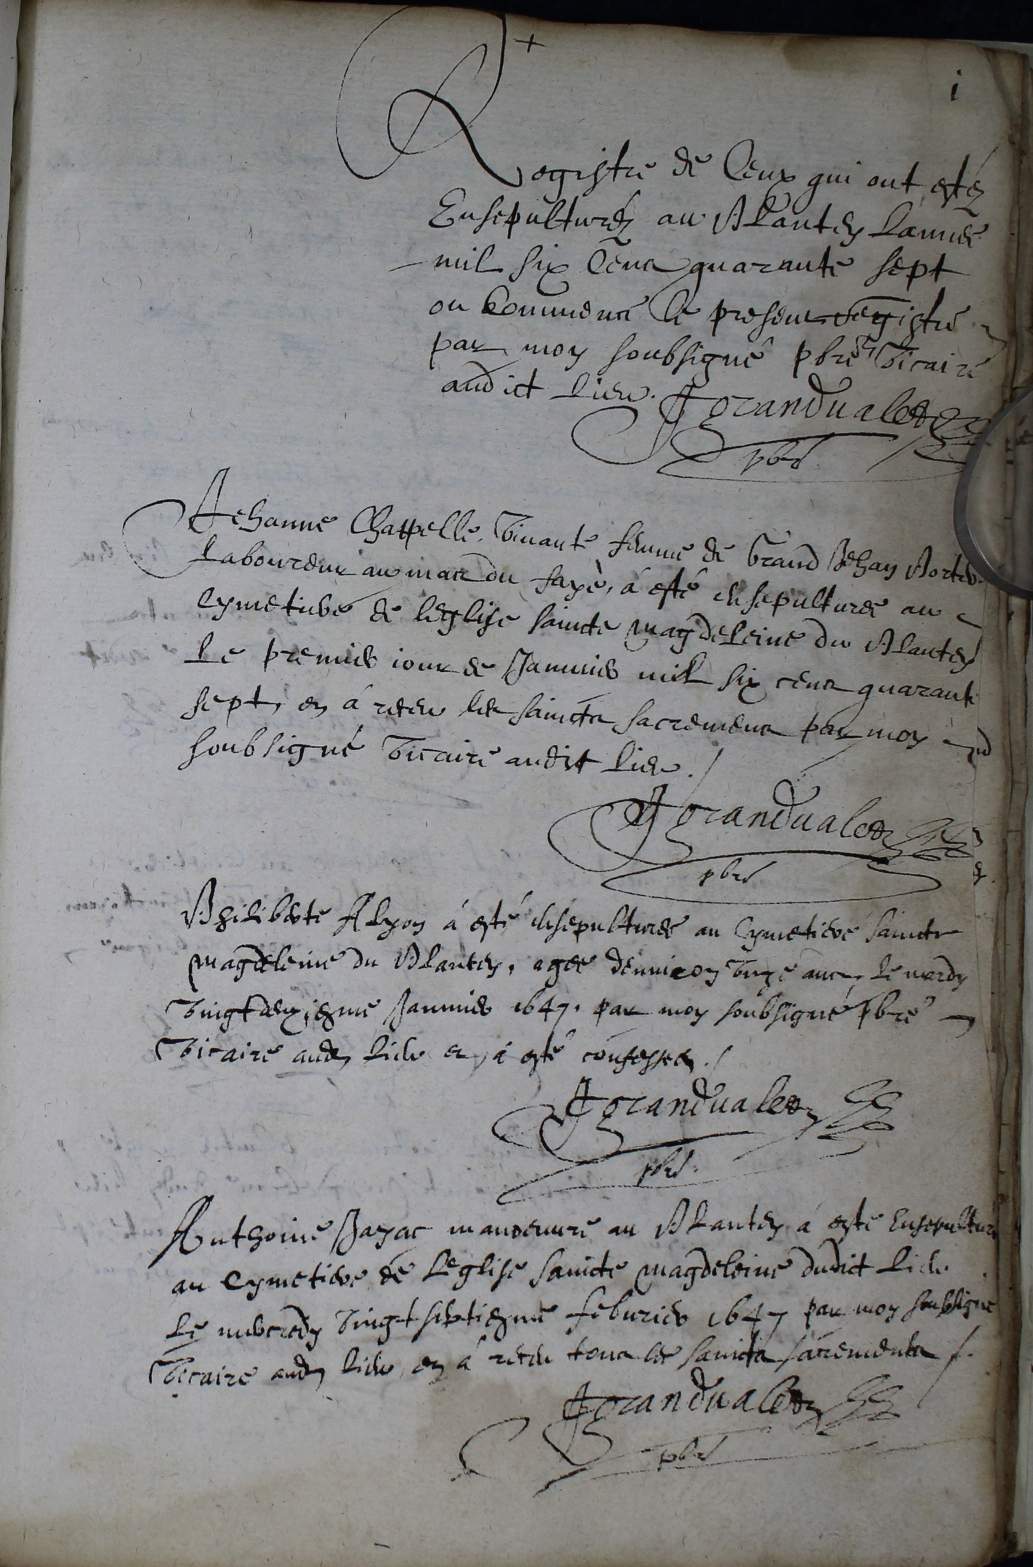 i
Registre de Ceux qui ont estéz
Ensepulturéz au Plantey L'année
mil six Cens quarante sept
ou commence Le present registre
par moy soubsigné pbre Vicaire
audict Lieu. Jgranduale
pbre
Jehanne Chappelle vivante femme de Grand Jehan
Laboureur au mas du faye, á esté ensepulturée au
Cymetiere de l'eglise saincte magdeleine du Plantey
Le premier jour de Janvier mil six cens quarante
sept, et á receu les saincts sacremens par moy
soubsigné Vicaire audit lieu./
Jgranduale
pbre
Philiberte Alyon á esté ensepulturée au Cymetiere saincte
magdeleine du Plantey, agée d'environ unze ans, le mardy
Vingtdeuxiezme Janvier 1647. par moy soubsigné pbre
Vicaire aud lieu et á esté confessée./
Jgranduale
pbre
Anthoine Jayac manoeuvre au Plantey á esté Ensepulturé
au Cymetiere de L'eglise saincte magdeleine dudict Lieu
Le mercredy Vingt septiezme febvrier 1647 par moy soubsigné
Vicaire aud lieu, et á receu tous les saincts sacrements /.
Jgranduale
pbre